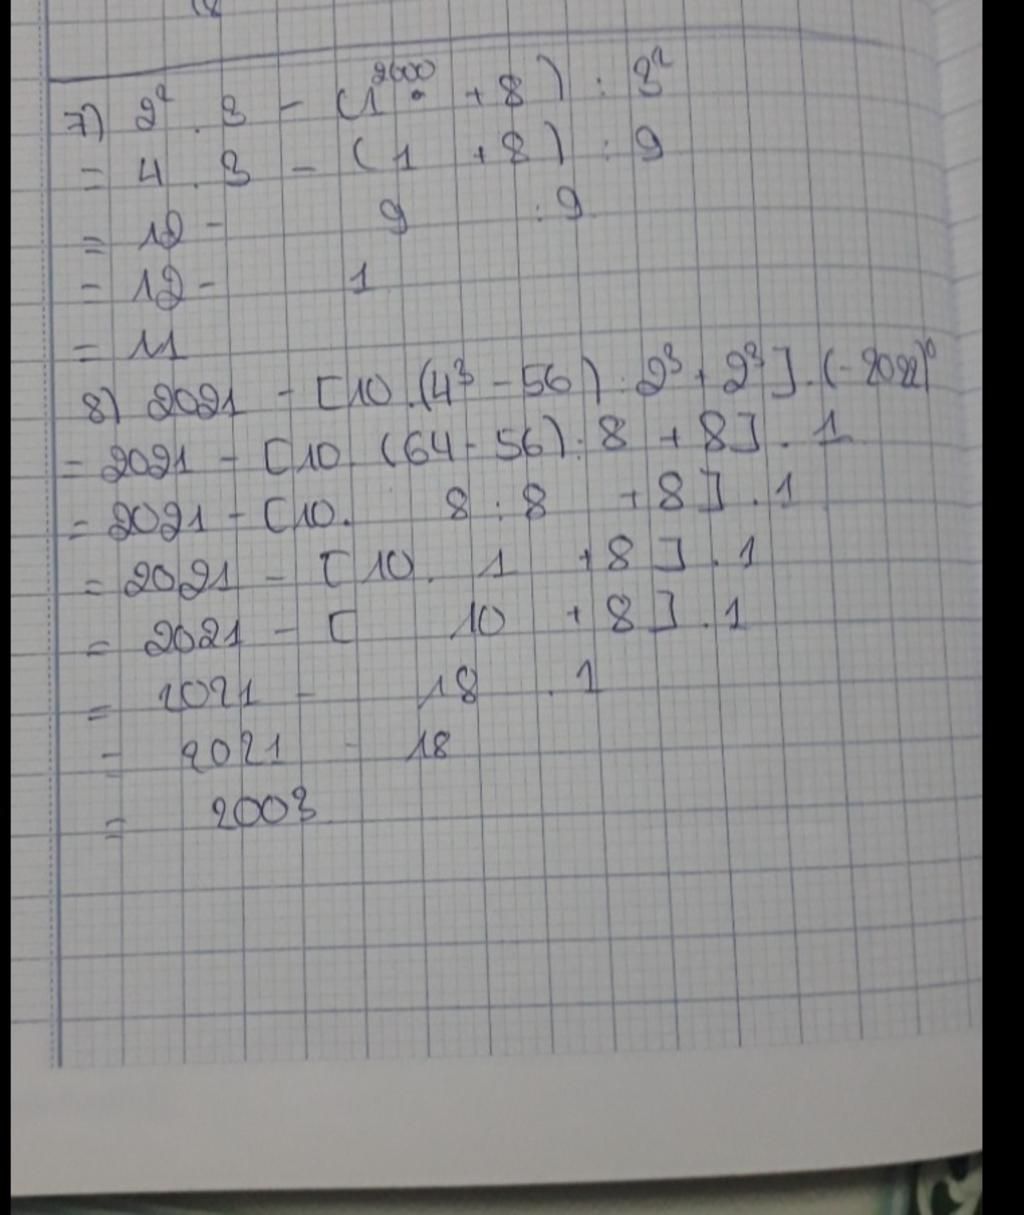 7) 2² . 3 - (1²⁰⁰⁰ + 8) : 3²
= 4 . 3 - (1 + 8) : 9
= 12 - 9 : 9
= 12 - 1
= 11
8) 2021 - [10 . (4³ - 56) : 2³ + 2³] . (-2022)⁰
= 2021 - [10 (64 - 56) : 8 + 8] . 1
= 2021 - [10 . 8 : 8 + 8] . 1
= 2021 - [10 . 1 + 8] . 1
= 2021 - [ 10 + 8] . 1
= 2021 - 18 . 1
= 2021 - 18
= 2003